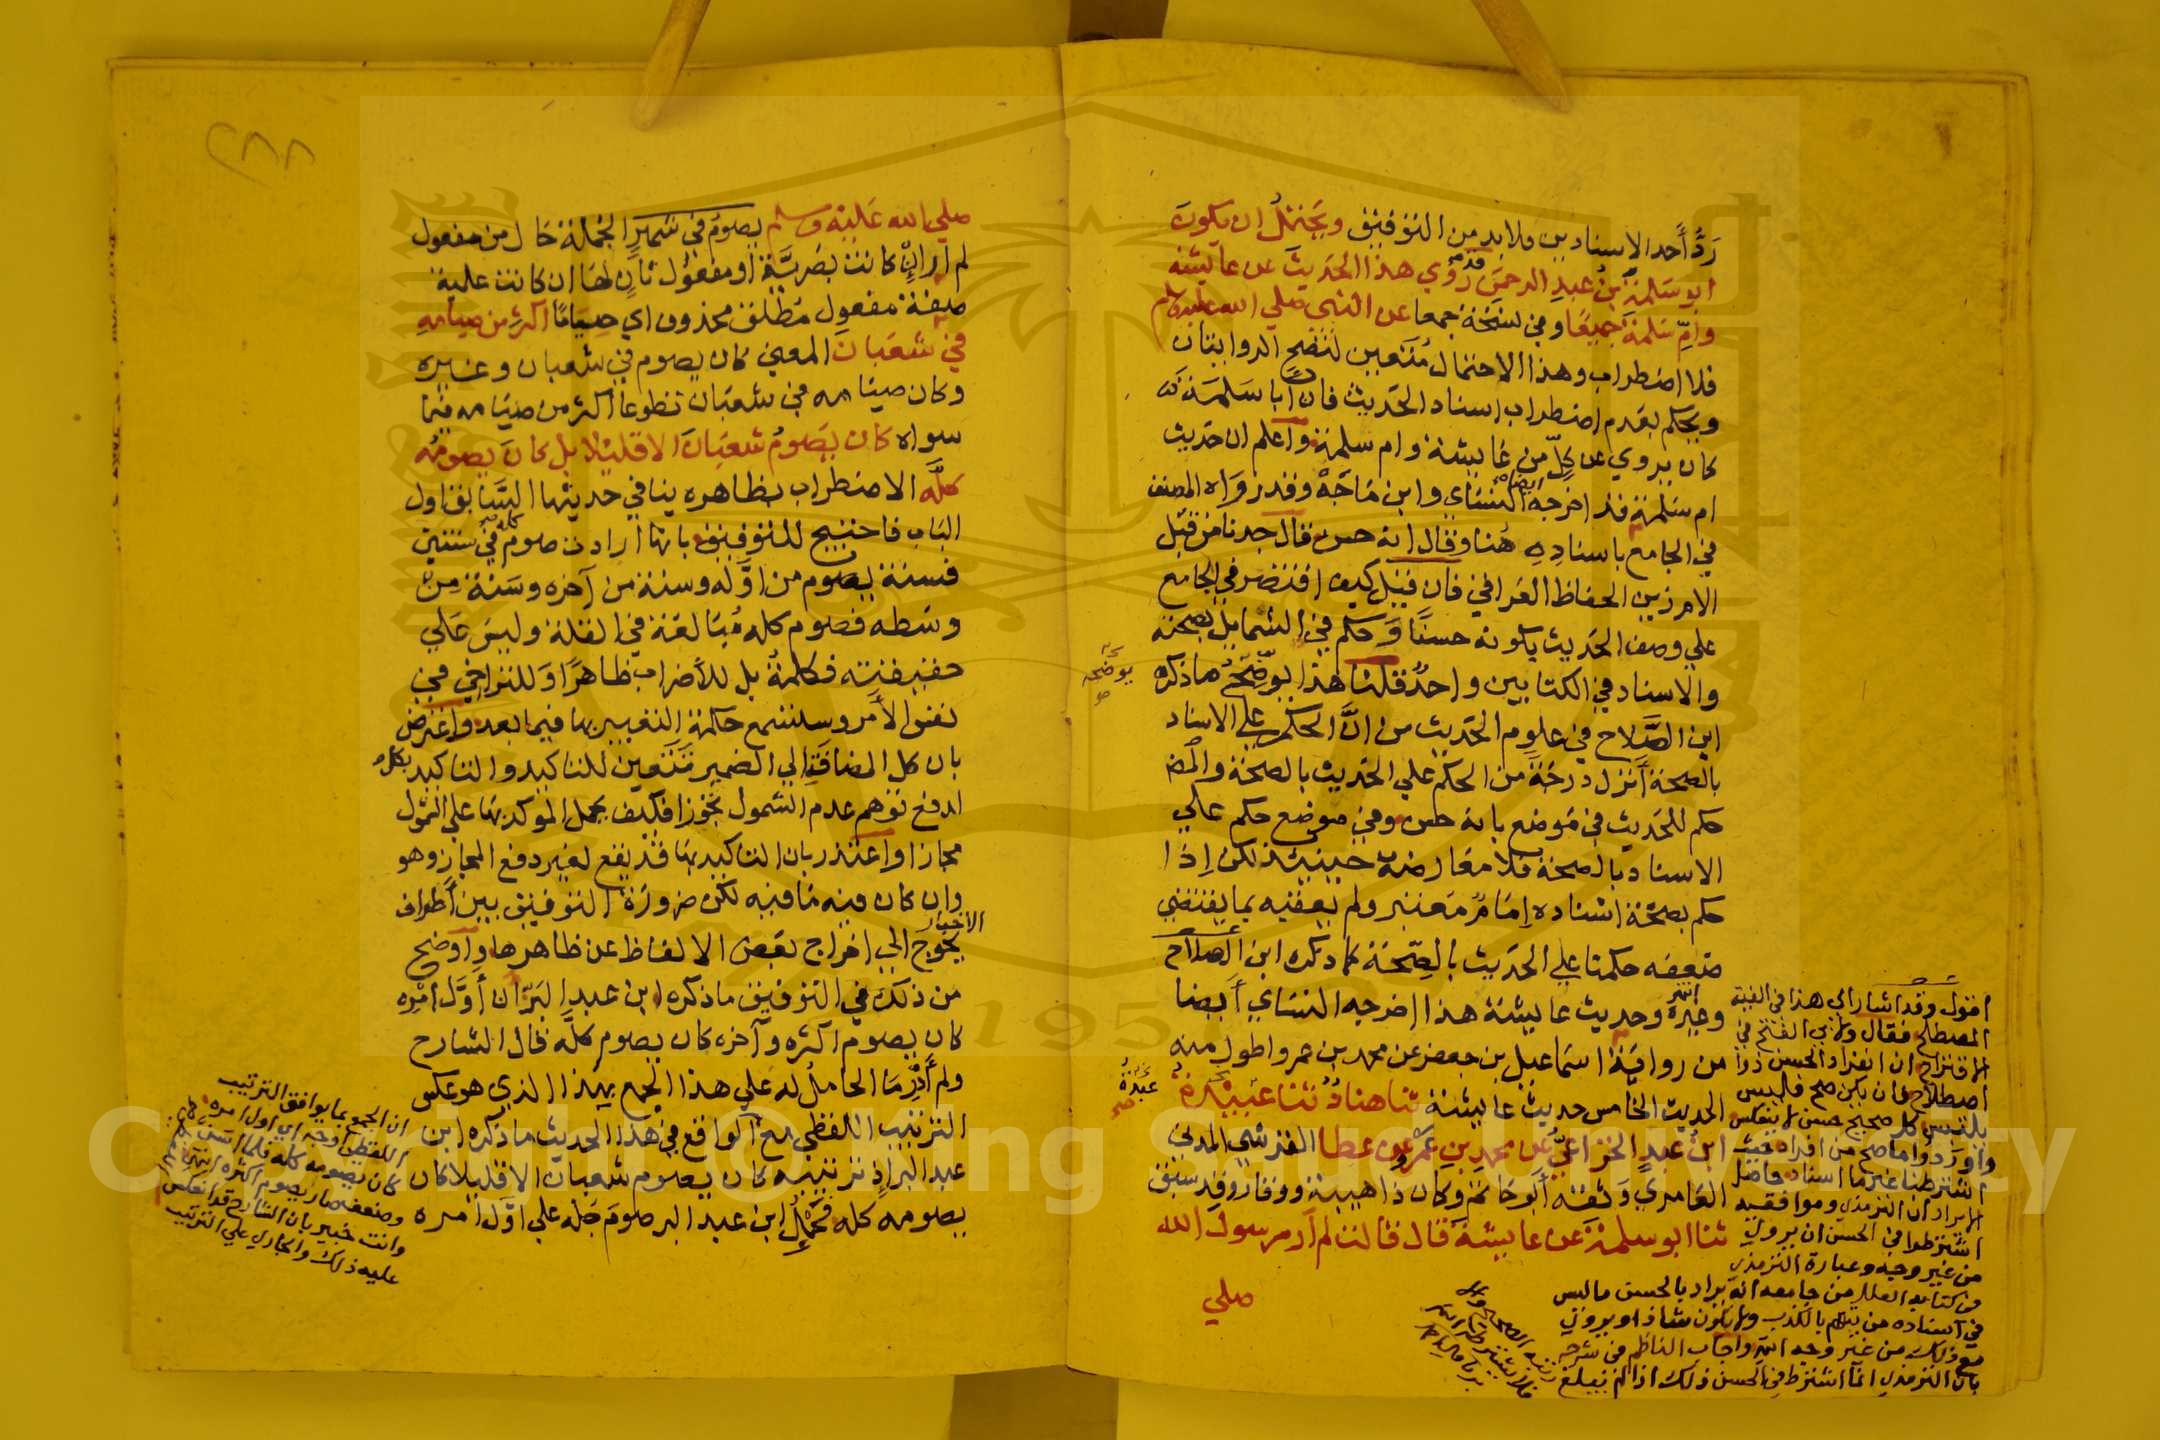 رد أحد الإسنادين فلا بد من التوفيق ويحتمل ان يكون
ابو سلمة بن عبد الرحمن قد روي هذا الحديث عن عايشة
وام سلمة جميعا وفي نسخة جمعا عن النبي صلي الله عليه وسلم
فلا اضطراب وهذا الاحتمال متعين لتصح الروايتان
ويحكم بعدم اضطراب اسناد الحديث فان أبا سلمة
كان يروي عن كل من عايشة وام سلمة واعلم ان حديث
ام سلمة قد اخرجه ايضا النساي وابن ماجه وقد رواه المصنف
في الجامع باسناده هنا وقال انه حسن قال جدنا من قبل
الام زين الحفاظ العراقي فان قيل كيف اقتصر في الجامع
علي وصف الحديث بكونه حسنا وحكم في الشمايل بصحته
والاسناد في الكتابين واحد قلنا هذا يوضحه ما ذكره
ابن الصلاح في علوم الحديث من ان الحكم علي الاسناد
بالصحة أنزل درجة من الحكم علي الحديث بالصحة والمص
حكم للحديث في موضع بانه حسن وفي موضع حكم علي
الاسناد بالصحة فلا معارضة حينئذ لكن إذا
حكم بصحة اسناده امام معتبر ولم يعقبه بما يقتضي
ضعفه حكمنا علي الحديث بالصحة كما ذكره ابن الصلاح
وغيره انتهي وحديث عايشة هذا اخرجه النساي أيضا
من رواية اسماعيل بن جعفر عن محمد بن عمرو اطول منه
الحديث الخامس حديث عايشة ثنا هناد ثنا عبدة
ابن عبد الخزاعي عن محمد بن عمرو عن عطا القرشي المدني
العامري وثقه أبو حاتم وكان ذا هيبة ووقار وقد سبق
ثنا ابو سلمة عن عايشة قال قالت لم أر رسول الله
صلي
يوضحه
عبدة
اقول وقد اشار الي هذا في الفية
المصطلح فقال ولابي الفتح في
الاقتراح ان انفراد الحسن ذو
اصطلاح وان يكن صح فليس
يلتبس كل صحيح حسن لا ينعكس
وأوردوا ما صح من افراد حيث
اشترطنا غير ما اسناد حاصل
الايراد ان الترمذي وموافقيه
اشترطوا في الحسن ان يروي
من غير وجه وعبارة الترمذي
في كتاب العلل من جامعه انه يراد بالحسن ما ليس
في اسناده من يتهم بالكذب ولا يكون شاذا ويروي
مع ذلك من غير وجه انتهي واجاب الناظم في شرحه
بان الترمذي انما اشترط في الحسن ذلك اذا لم يبلغ
رتبة الصحيح
صلي الله عليه وسلم يصوم في شهر الجملة حال من مفعول
لم أر إن كانت بصرية أو مفعول ثان لها ان كانت علمية
صفة مفعول مطلق محذوف اي صياما اكثر من صيامه
في شعبان المعني كان يصوم في شعبان وغيره
وكان صيامه في شعبان تطوعا أكثر من صيامه فيما
سواه كان يصوم شعبان الا قليلا بل كان يصومه
كله الاضطراب بظاهره ينافي حديثها السابق اول
الباب فاحتيج للتوفيق بانها أرادت صوم كله في سنتين
فسنة يصوم من أوله وسنة من آخره وسنة من
وسطه فصوم كله مبالغة في القلة وليس علي
حقيقته فكلمة بل للأضراب ظاهرا وللتراخي في
نفس الأمر وستسمع حكمة التعبير بها فيما بعد واعترض
بان كل المضاف إلي الضمير تتعين للتاكيد والتاكيد بكل
لدفع توهم عدم الشمول تجوزا فكيف يحمل الموكد بها علي الشمول
مجازا واعتذر بان التاكيد بها قد يقع لغير دفع المجاز وهو
وان كان فيه ما فيه لكن ضرورة التوفيق بين أطراف الاخبار
يحوج الي اخراج بعض الالفاظ عن ظاهرها واوضح
من ذلك في التوفيق ما ذكره ابن عبد البر ان أول امره
كان يصوم أكثره وآخره كان يصوم كله قال الشارح
ولم أدر ما الحامل له علي هذا الجمع بهذا الذي هو عكس
الترتيب اللفظي مع الواقع في هذا الحديث ما ذكره ابن
عبد البر إذ ترتيبه كان يصوم شعبان الا قليلا كان
يصومه كله فحمل ابن عبد البر صوم جله علي أول امره
ان الجمع بما يوافق الترتيب
اللفظي أوجه اي اول امره
كان يصومه كله فلما اسن
وضعف صار يصوم أكثره
وانت خبير بان الشارح قد انعكس
عليه ذلك والجاري علي الترتيب
٢٨٨
Copyright © King Saud University
1957